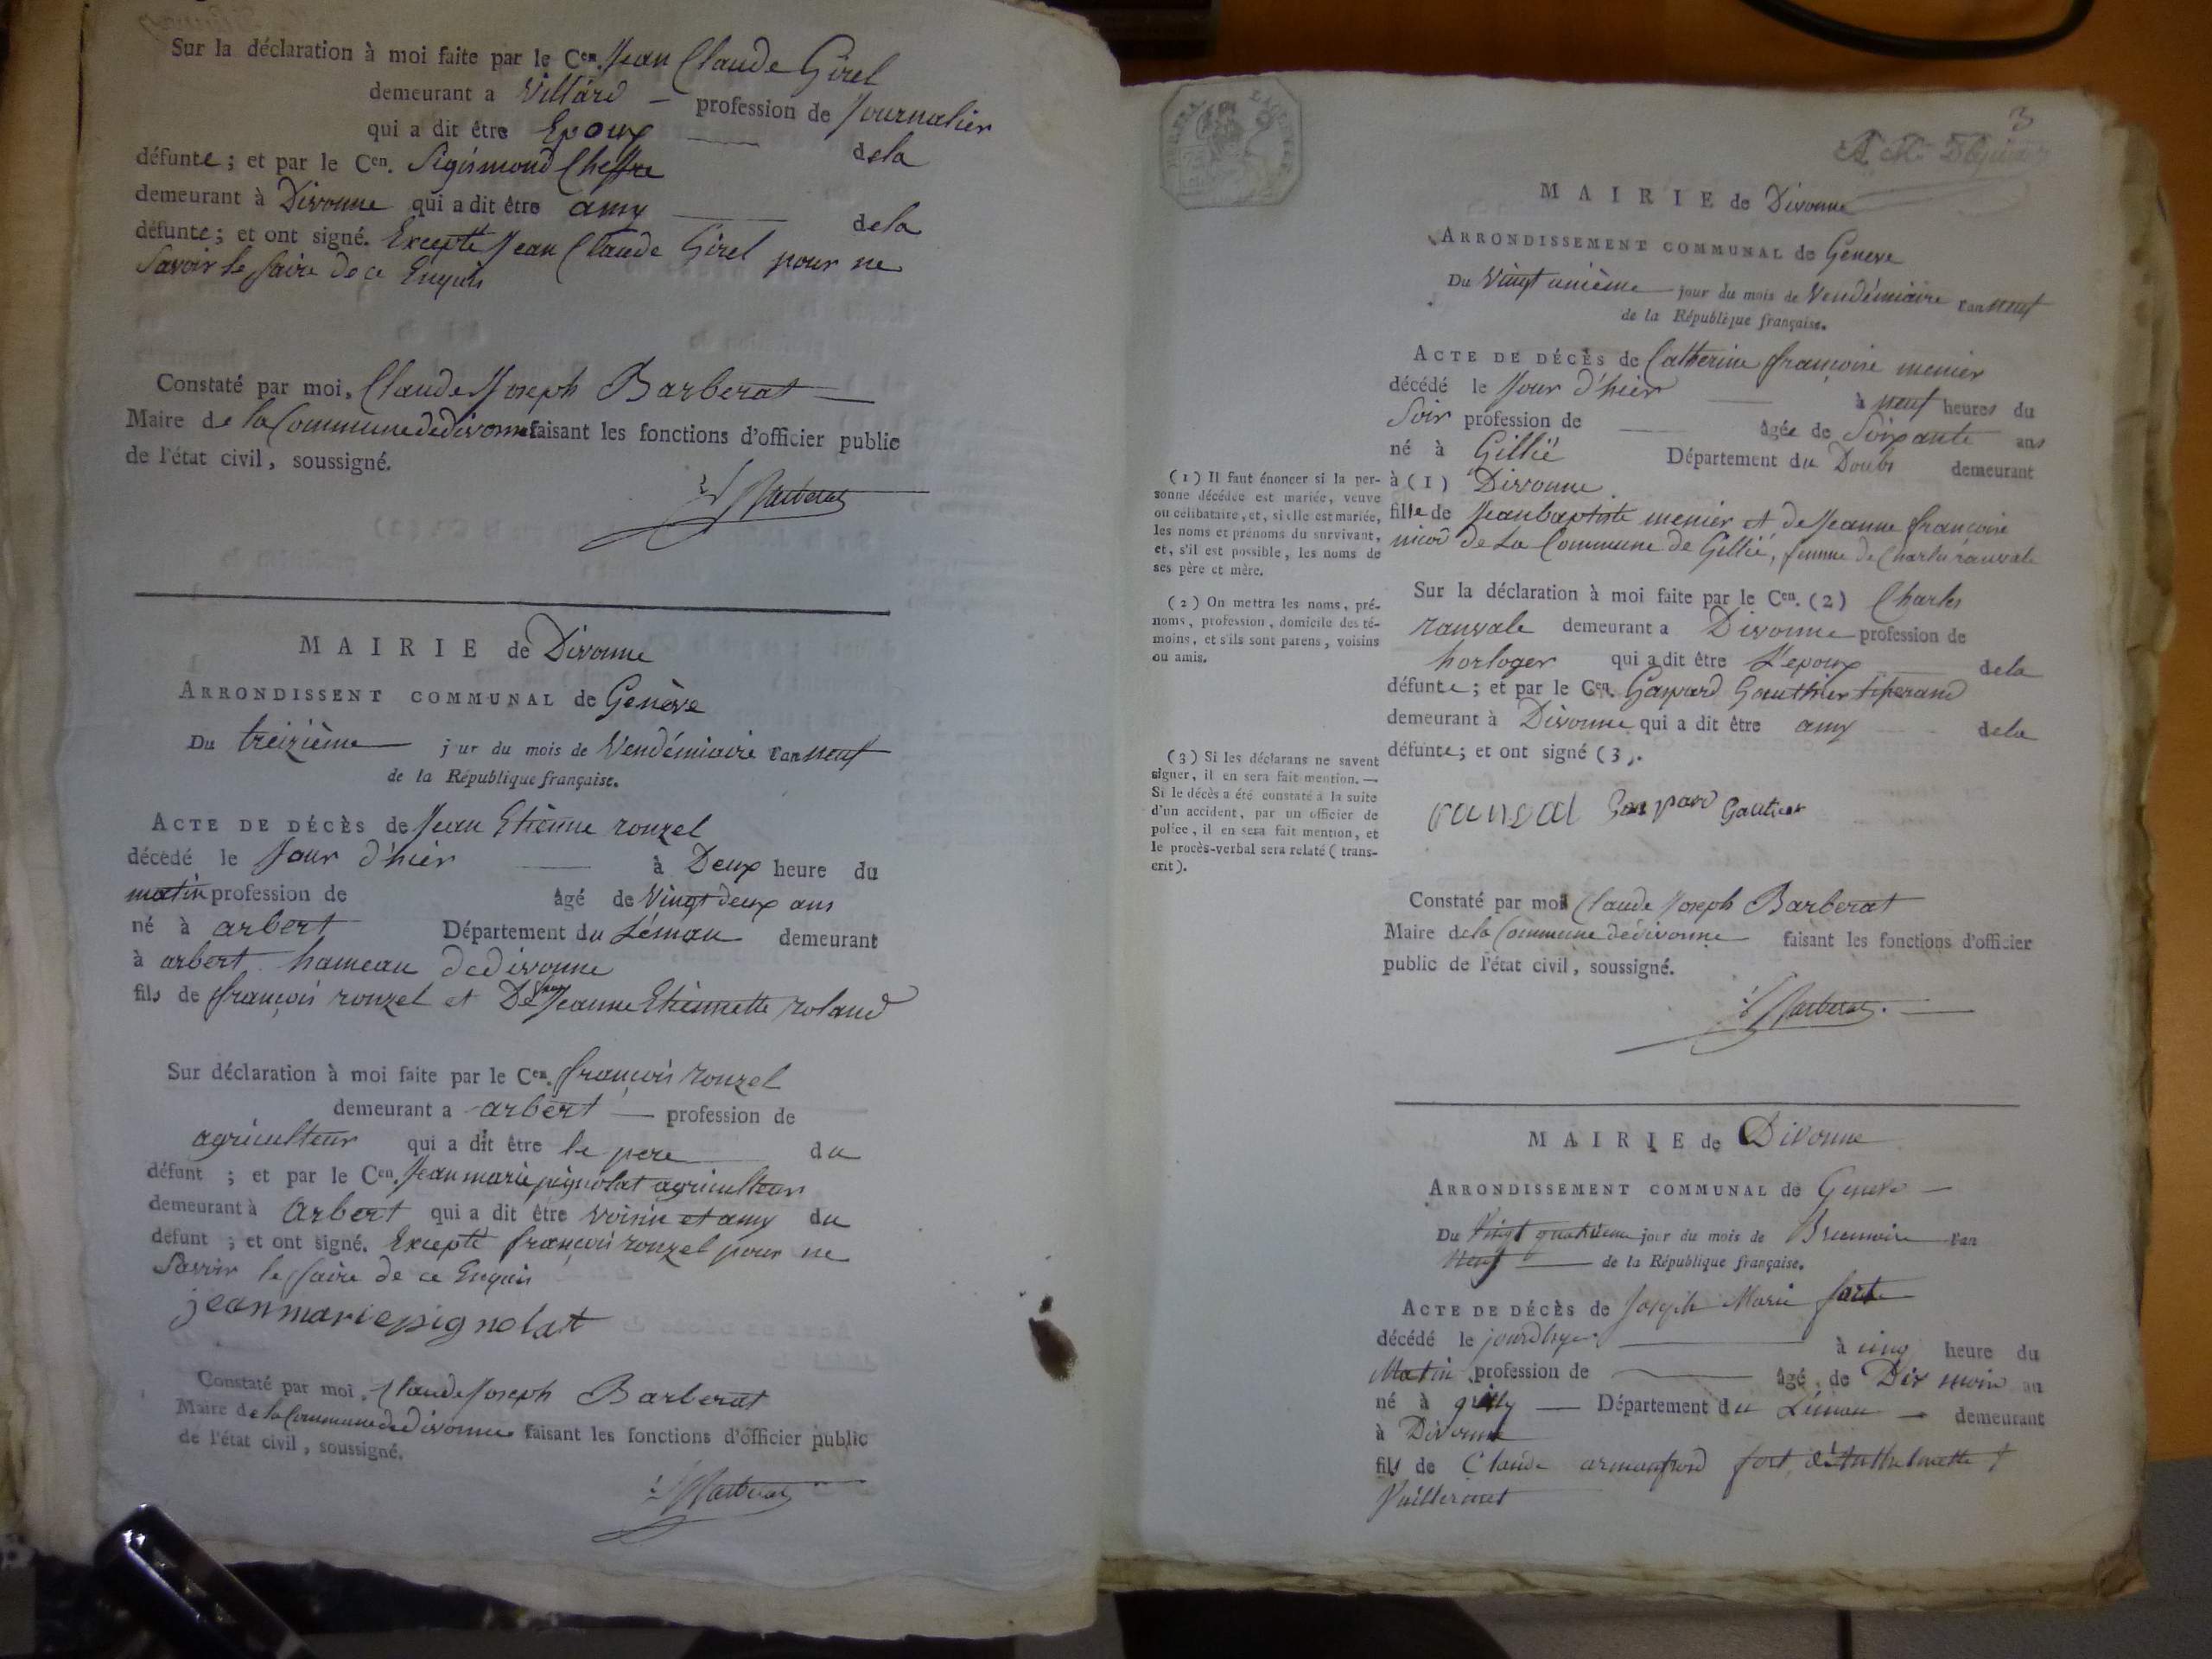 Sur la déclaration à moi faite par le Cen. Jean Claude Girel
demeurant a Villard — profession de Journalier
qui a dit être Epoux — dela
défunte; et par le Cen. Sigismond Cheffre
demeurant à Divonne qui a dit être amy — dela
défunte; et ont signé. Excepté Jean Claude Girel pour ne
Savoir le faire de ce Enquis
Constaté par moi, Claude Joseph Barberat
Maire de la Commune de divonne faisant les fonctions d'officier public
de l'état civil, soussigné.
Barberat
MAIRIE de Divonne
ARRONDISSENT COMMUNAL de Genève
Du treizième — j ur du mois de Vendémiaire l'an neuf
de la République française.
ACTE DE DÉCÈS de Jean Etienne rouzel
décédé le Jour d'hier — à Deux heure du
matin profession de âgé de Vingt deux ans
né à arbert Département du Léman demeurant
à arbert hameau de divonne
fils de françois rouzel et De Jeanne Etiennette roland
Sur déclaration à moi faite par le Cen. françois rouzel
demeurant a arbert — profession de
agriculteur qui a dit être le pere — du
défunt ; et par le Cen. Jean marie pignolat agriculteur
demeurant à Arbert qui a dit être voisin et amy du
défunt ; et ont signé. Excepté françois rouzel pour ne
Savoir le faire de ce Enquis
jean marie pignolat
Constaté par moi, Claude Joseph Barberat
Maire de la Commune de divonne faisant les fonctions d'officier public
de l'état civil, soussigné.
Barberat
3
MAIRIE de Divonne
ARRONDISSEMENT COMMUNAL de Geneve
Du Vingt unième — jour du mois de Vendémiaire l'an neuf
de la République française.
ACTE DE DÉCÈS de Catherine françoise menier
décédé le Jour d'hier — à neuf heures du
Soir profession de — âgée de Soixante ans
né à Gillié Département du Doubs demeurant
à (1) Divonne
fille de Jean baptiste menier et de Jeanne françoise
nicod de La Commune de Gillié, femme de Charles ranvale
(1) Il faut énoncer si la per-
sonne décédée est mariée, veuve
ou célibataire, et, si elle est mariée,
les noms et prénoms du survivant,
et, s'il est possible, les noms de
ses père et mère.
Sur la déclaration à moi faite par le Cen. (2) Charles
ranvale demeurant a Divonne profession de
horloger qui a dit être L'epoux — dela
défunte; et par le Cen. Gaspard Gauthier
demeurant à Divonne qui a dit être amy dela
défunte; et ont signé (3).
(2) On mettra les noms, pré-
noms, profession, domicile des té-
moins, et s'ils sont parens, voisins
ou amis.
(3) Si les déclarans ne savent
signer, il en sera fait mention. —
Si le décès a été constaté à la suite
d'un accident, par un officier de
police, il en sera fait mention, et
le procès-verbal sera relaté (trans-
crit).
ranval Gaspard Gautier
Constaté par moi Claude Joseph Barberat
Maire dela Commune de divonne faisant les fonctions d'officier
public de l'état civil, soussigné.
Barberat
MAIRIE de Divonne
ARRONDISSEMENT COMMUNAL de Geneve —
Du Vingt quatrieme jour du mois de Brumaire l'an
Neuf — de la République française.
ACTE DE DÉCÈS de Joseph Marie fort
décédé le jourdhyer — à cinq heure du
Matin profession de — âgé de Dix mois an
né à grilly — Département du Léman — demeurant
à Divonne
fils de Claude fort
Vuillermet